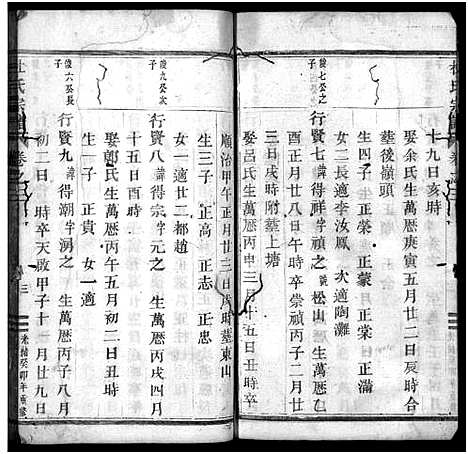 十九日亥時
娶余氏生萬曆庚寅五月廿二日辰時合
葬後嶺頭
生四子 正榮 正蒙 正棠 正滿
女二長適李汝鳳 次適陶灘
俊七公之子
行賢七 諱得祥 字禎之 號松山 生萬曆乙
酉八月廿六日午時卒崇禎丙子二月廿
三日戌時附葬上塘
娶呂氏生萬曆丙申三月十五日丑時卒
順治甲午正月廿三日戌時葬東山
生三子 正高 正志 正忠
女一適廿三都趙
俊九公次子
行賢八 諱得宗 字元之 生萬曆丙戌四月
十五日酉時
娶鄭氏生萬曆丙午五月初二日丑時
生一子 正貴 女一適
俊六公長子
行賢九 諱得朝 字湧之 生萬曆丙子八月
初二日 時卒天啟甲子十一月廿九日
杜氏宗譜 卷之
三
光緒癸卯年重修